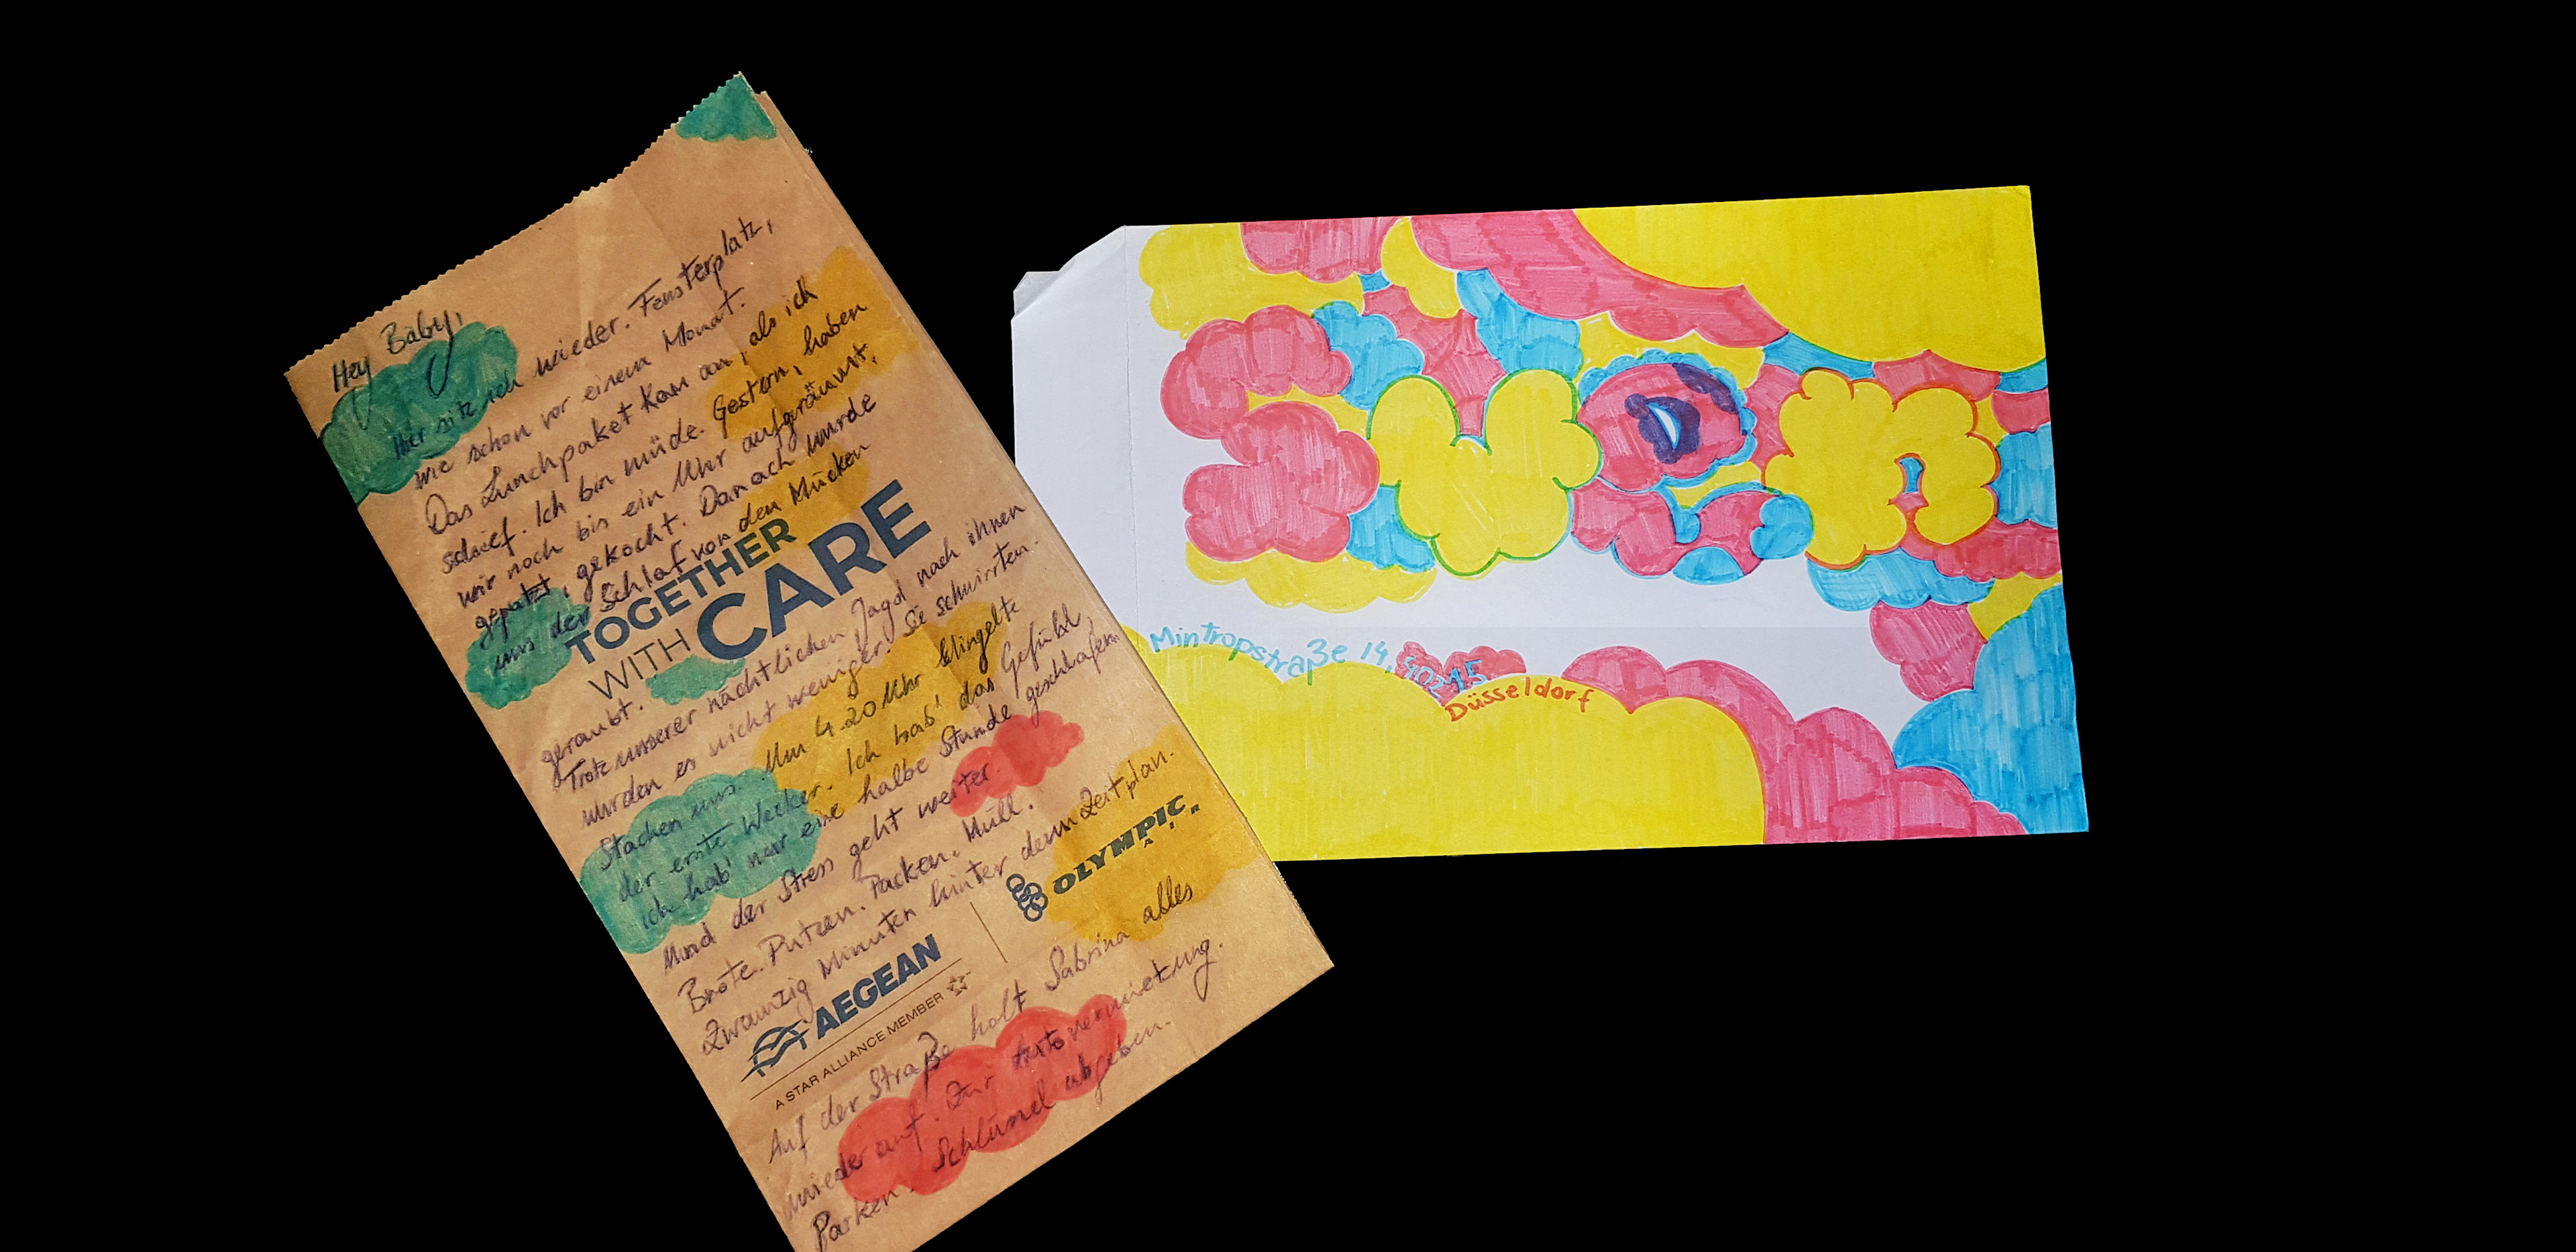 Hey Baby,
Hier sitz ich wieder. Fensterplatz,
wie schon vor einem Monat.
Das Lunchpaket kam an, als ich
schlief. Ich bin müde. Gestern, haben
wir noch bis ein Uhr aufgeräumt,
geputzt, gekocht. Danach wurde
uns der Schlaf von den Mücken
TOGETHER
WITH CARE
geraubt.
Trotz unserer nächtlichen Jagd nach ihnen
wurden es nicht weniger! Sie schwirrten.
Stachen uns. Um 4.20 Uhr klingelte
der erste Wecker. Ich hab' das Gefühl
ich hab' nur eine halbe Stunde geschlafen.
Und der Stress geht weiter.
Brote. Putzen. Packen. Müll.
Zwanzig Minuten hinter dem Zeitplan.
AEGEAN
A STAR ALLIANCE MEMBER
OLYMPIC
AIR
Auf der Straße holt Sabrina alles
wieder auf. Zur Autovermietung.
Parken. Schlüssel abgeben.
Sven
Mintropstraße 14, 40215
Düsseldorf